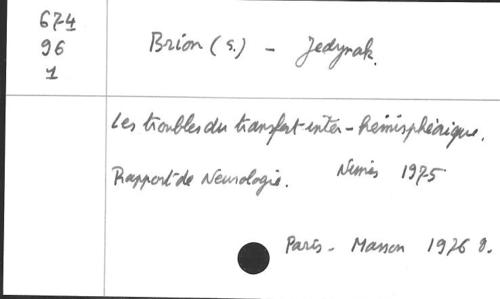 674
96
1
Brion (S.) - Jedynak.
Les troubles du transfert inter-hémisphérique.
Rapport de Neurologie. Nimes 1975
Paris - Masson 1976 8.